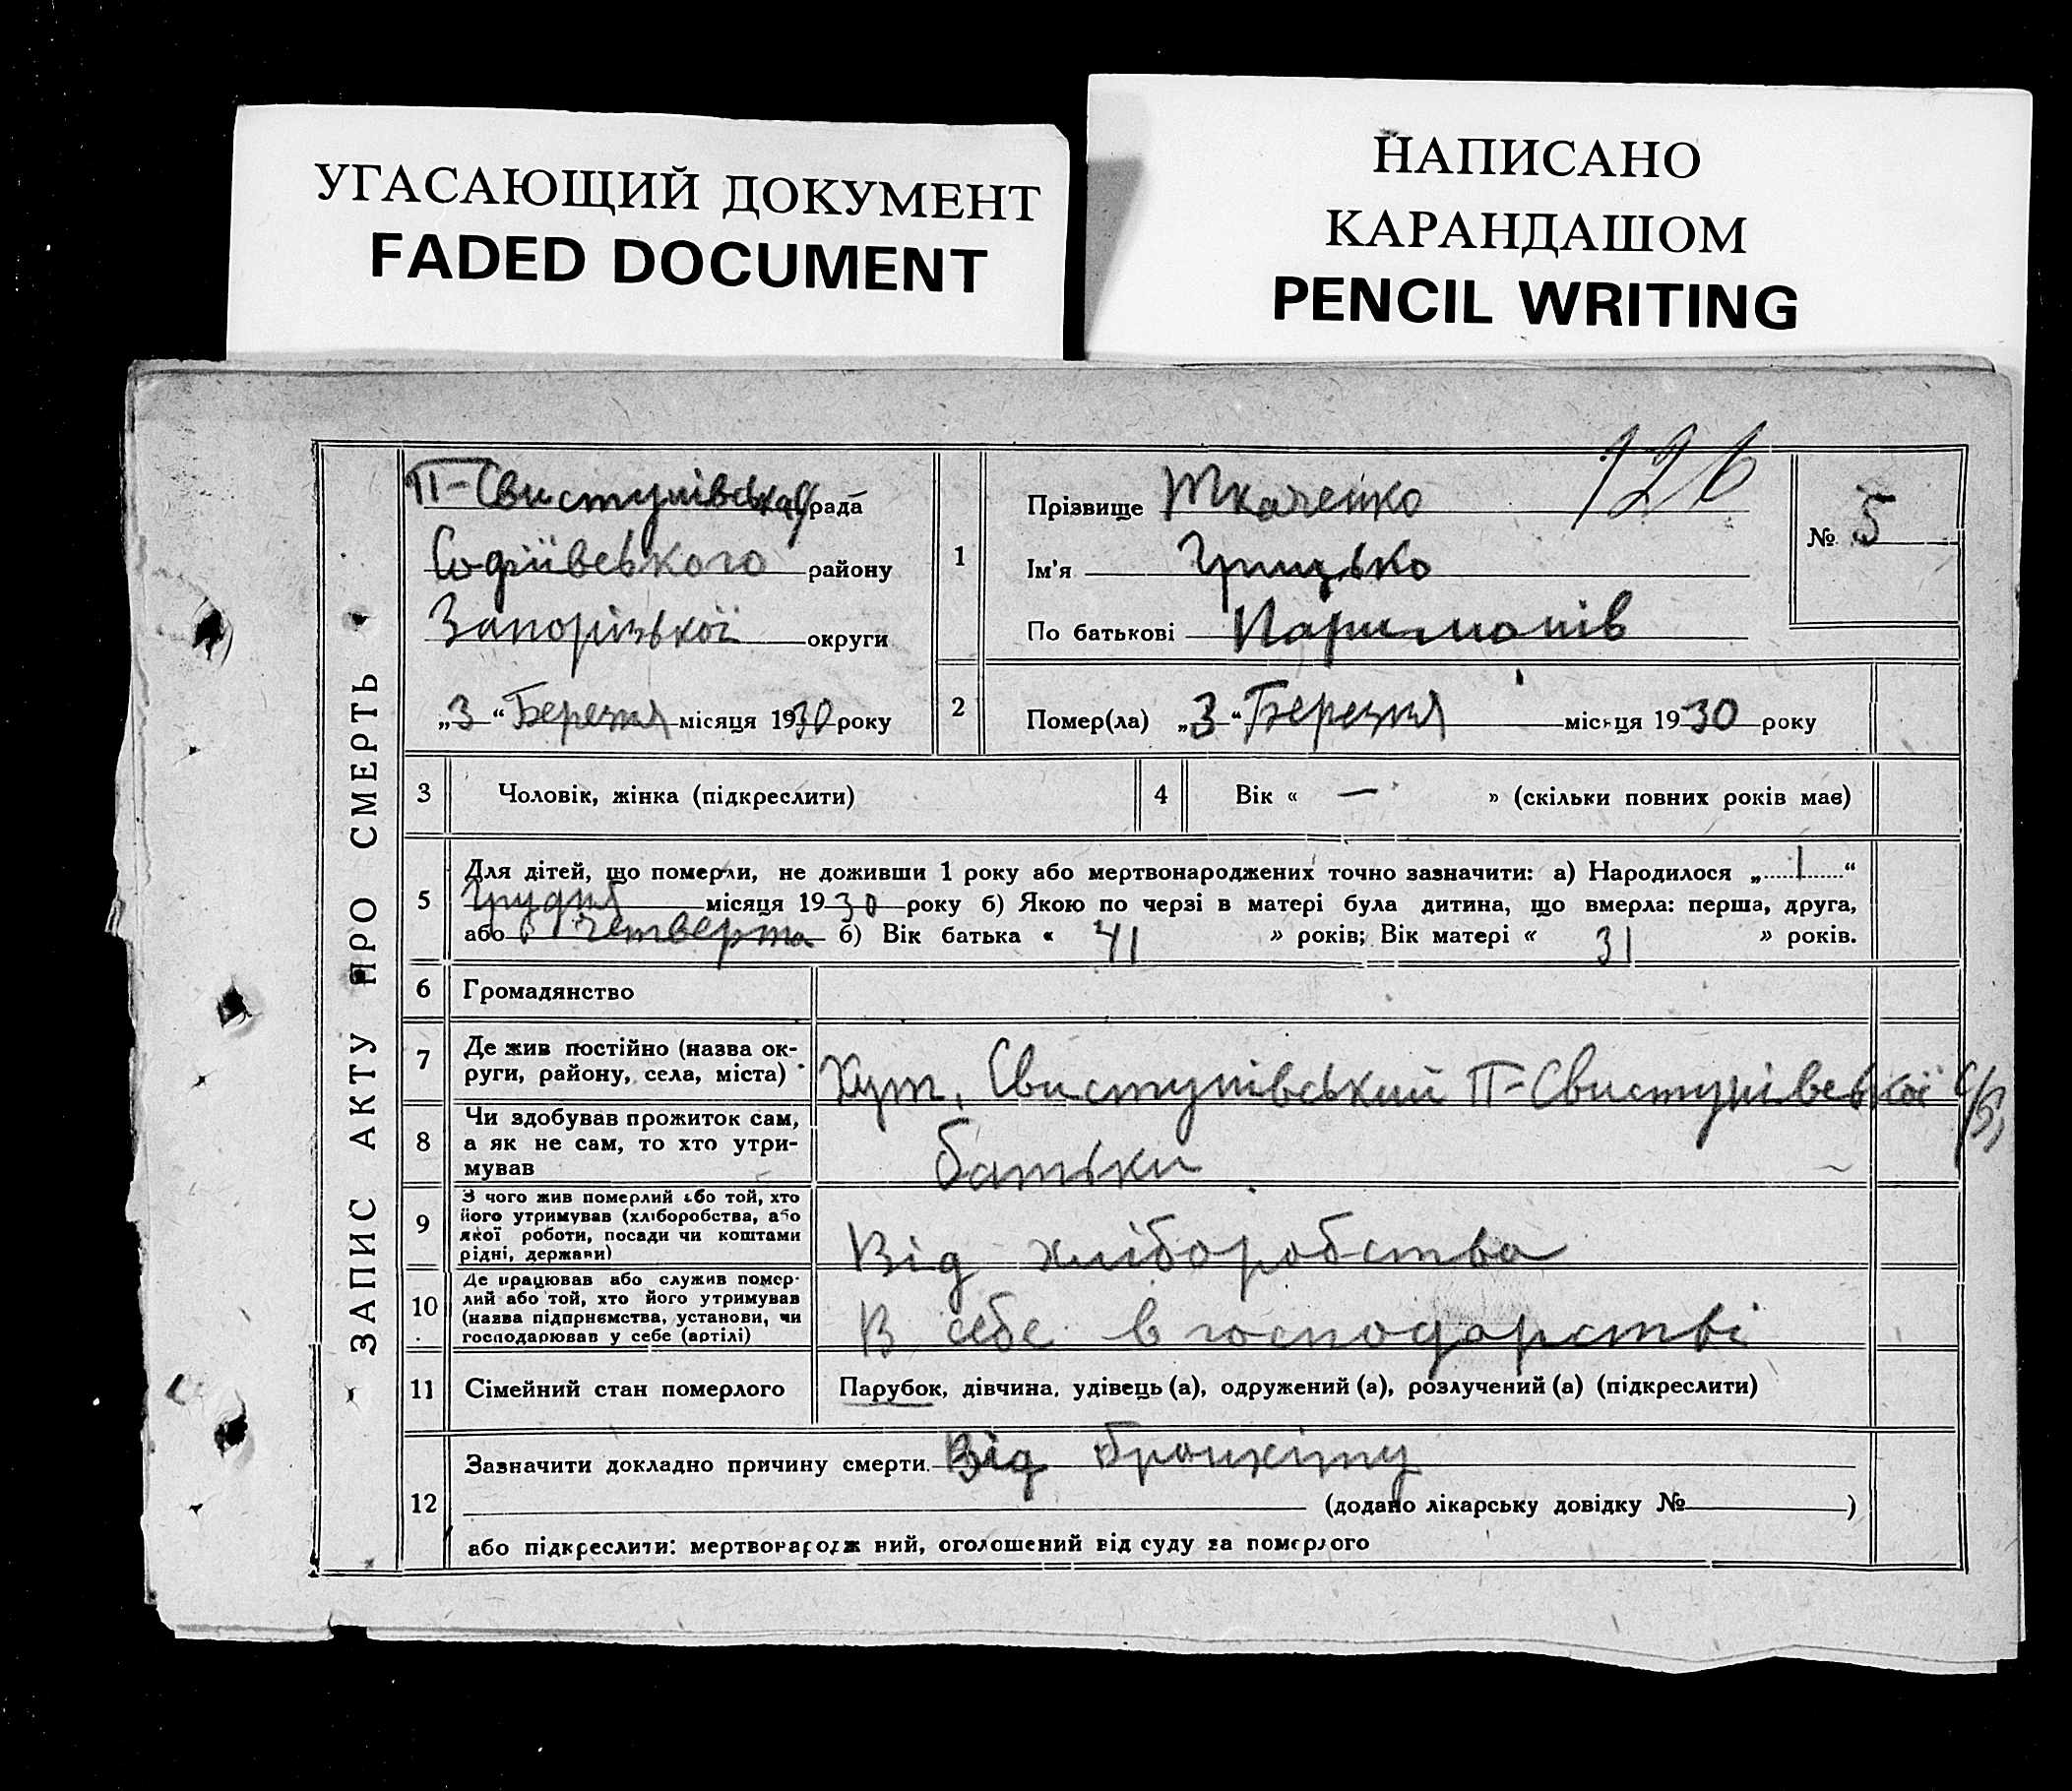 УГАСАЮЩИЙ ДОКУМЕНТ
FADED DOCUMENT
НАПИСАНО
КАРАНДАШОМ
PENCIL WRITING
126
ЗАПИС АКТУ ПРО СМЕРТЬ
П-Свистунівська с/рада
Софіївського району
Запорізької округи
„3“ Березня місяця 1930 року
1
Прізвище Ткаченко
Ім'я Грицько
По батькові
№ 5
2
Помер(ла) „3“ Березня місяця 1930 року
3 Чоловік, жінка (підкреслити)
4 Вік « — » (скільки повних років має)
5
Для дітей, що померли, не доживши 1 року або мертвонароджених точно зазначити: а) Народилося „1“
Грудня місяця 1930 року б) Якою по черзі в матері була дитина, що вмерла: перша, друга,
або четверта б) Вік батька « 41 » років; Вік матері « 31 » років.
6 Громадянство
7
Де жив постійно (назва ок-
руги, району, села, міста)
Хут. Свистунівський П-Свистунівської с/р,
8
Чи здобував прожиток сам,
а як не сам, то хто утри-
мував
батьки
9
З чого жив померлий або той, хто
його утримував (хліборобства, або
якої роботи, посади чи коштами
рідні, держави)
Від хліборобства
10
Де працював або служив помер-
лий або той, хто його утримував
(назва підприємства, установи, чи
господарював у себе (артілі)
В себе в господарстві
11 Сімейний стан померлого
Парубок, дівчина, удівець (а), одружений (а), розлучений (а) (підкреслити)
12
Зазначити докладно причину смерти Від бронхіту
(додано лікарську довідку № )
або підкреслити: мертвонароджений, оголошений від суду за померлого